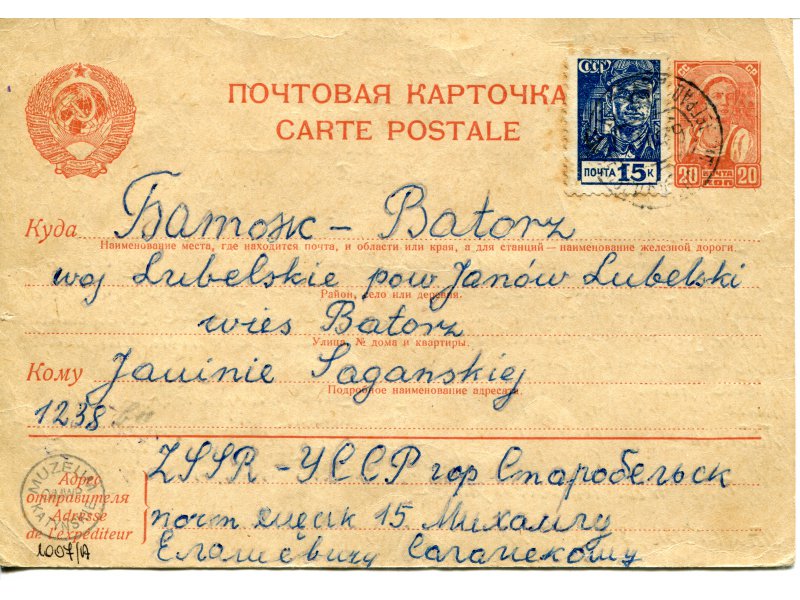 ПОЧТОВАЯ КАРТОЧКА
CARTE POSTALE
СССР
ПОЧТА 15 К
20 ПОЧТА КОП 20
Куда Батож – Batorz
Наименование места, где находится почта, и области или края, а для станций — наименование железной дороги.
woj Lubelskie pow Janów Lubelski
Район, село или деревня.
wies Batorz
Улица, № дома и квартиры.
Кому Janinie Saganskiej
Подробное наименование адресата.
1238
ZSSR – УССР гор Старобельск
Адрес отправителя
Adresse de l'expéditeur
почт ящеык 15 Михаилу
Саганскому
MUZEUM KATYŃSKIE
1007/A